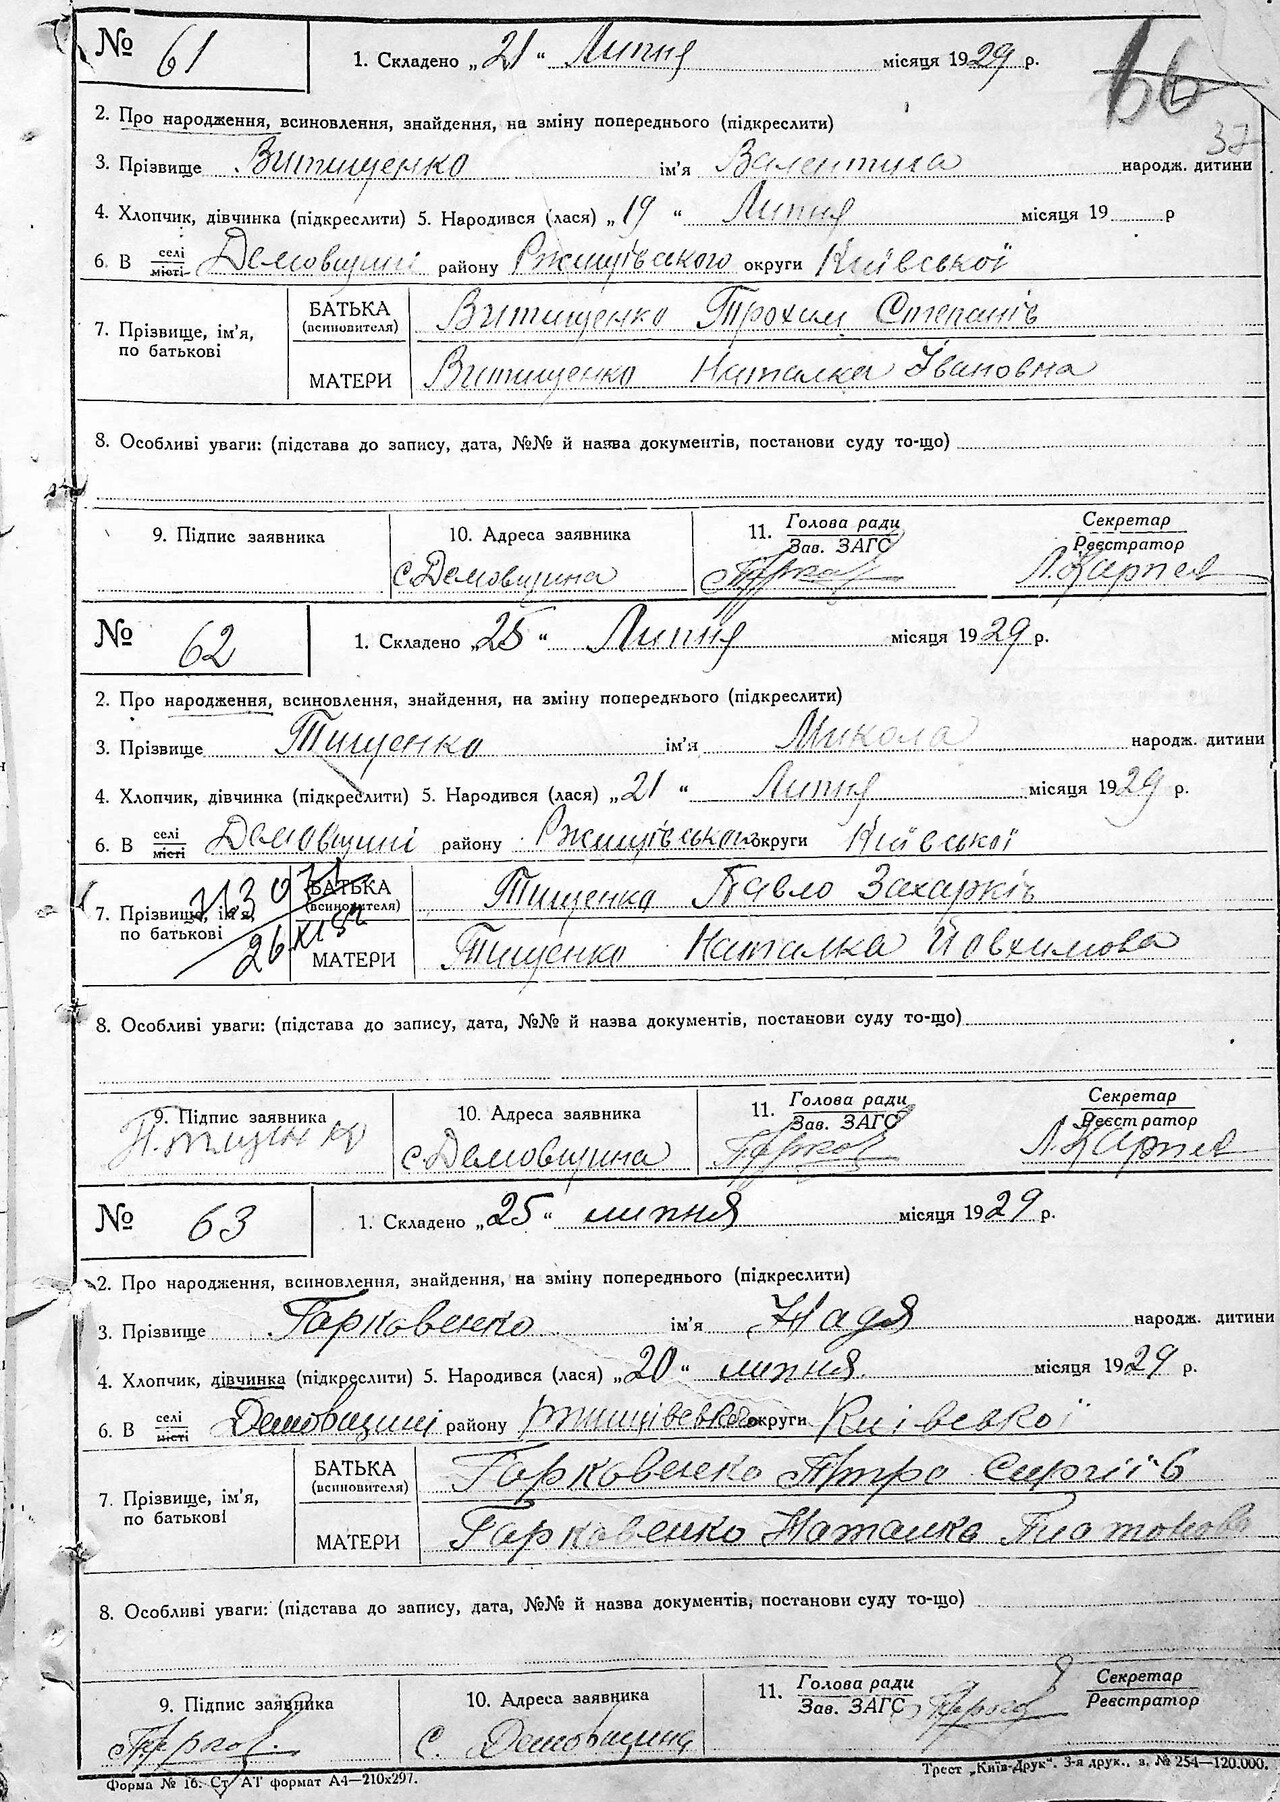 № 61 1. Складено „21“ Липня місяця 1929 р.
66
37
2. Про народження, всиновлення, знайдення, на зміну попереднього (підкреслити)
3. Прізвище Витищенко ім'я Валентина народж. дитини
4. Хлопчик, дівчинка (підкреслити) 5. Народився (лася) „19“ Липня місяця 19 р
6. В селі/місті Демовщині району Ржищівського округи Київської
7. Прізвище, ім'я, по батькові
БАТЬКА (всиновителя) Витищенко Трохим Степанів
МАТЕРИ Витищенко Наталка Івановна
8. Особливі уваги: (підстава до запису, дата, №№ й назва документів, постанови суду то-що)
9. Підпис заявника 10. Адреса заявника 11. Голова ради Секретар
Зав. ЗАГС Реєстратор
с. Демовщина Л. Карпея
№ 62 1. Складено „25“ Липня місяця 1929 р.
2. Про народження, всиновлення, знайдення, на зміну попереднього (підкреслити)
3. Прізвище Тищенко ім'я Микола народж. дитини
4. Хлопчик, дівчинка (підкреслити) 5. Народився (лася) „21“ Липня місяця 1929 р.
6. В селі/місті Демовщині району Ржищівського округи Київської
7. Прізвище, ім'я, по батькові
БАТЬКА (всиновителя) Тищенко Павло Захарків
МАТЕРИ Тищенко Наталка Йовхимова
8. Особливі уваги: (підстава до запису, дата, №№ й назва документів, постанови суду то-що)
9. Підпис заявника 10. Адреса заявника 11. Голова ради Секретар
Зав. ЗАГС Реєстратор
П. Тищенко с. Демовщина Л. Карпея
№ 63 1. Складено „25“ липня місяця 1929 р.
2. Про народження, всиновлення, знайдення, на зміну попереднього (підкреслити)
3. Прізвище Гарковенко ім'я Надя народж. дитини
4. Хлопчик, дівчинка (підкреслити) 5. Народився (лася) „20“ липня місяця 1929 р.
6. В селі/місті Демовщині району Ржищівсько округи Київської
7. Прізвище, ім'я, по батькові
БАТЬКА (всиновителя) Гарковенко Петро Сергіїв
МАТЕРИ Гарковенко Наталка Платонова
8. Особливі уваги: (підстава до запису, дата, №№ й назва документів, постанови суду то-що)
9. Підпис заявника 10. Адреса заявника 11. Голова ради Секретар
Зав. ЗАГС Реєстратор
с. Демовщина
Форма № 16. Ст АТ формат А4—210х297. Трест „Київ-Друк“. 3-я друк., з. № 254—120.000.